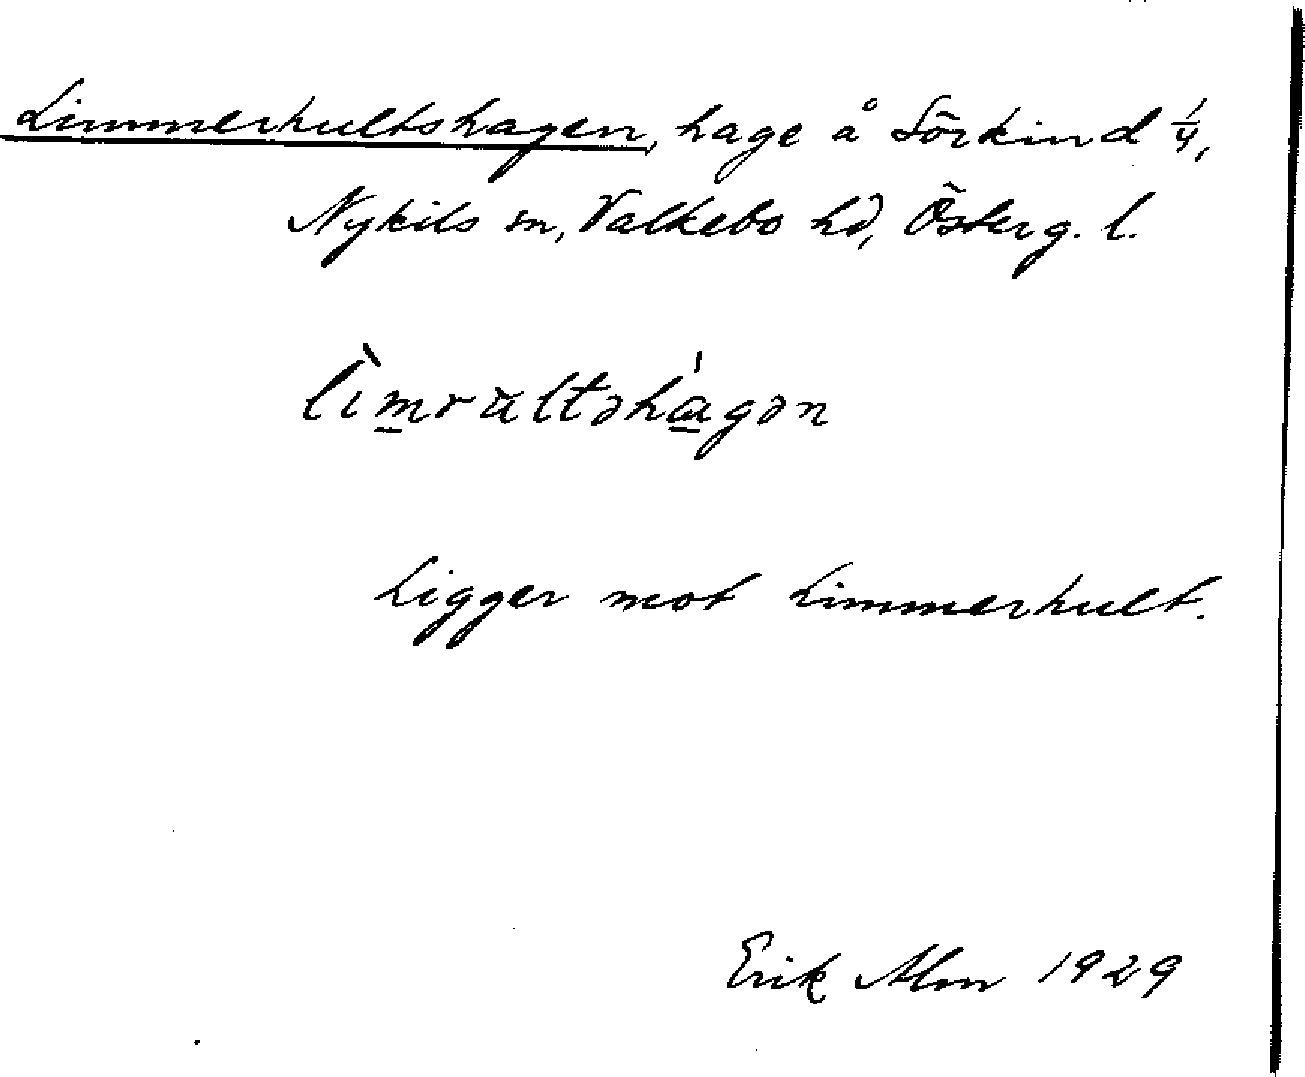 Limmerhultshagen, hage å Sörkind 1/4,
Nykils sn, Valkebo hd, Österg. l.
lìmrultshágən
Ligger mot Limmerhult.
Erik Alm 1929